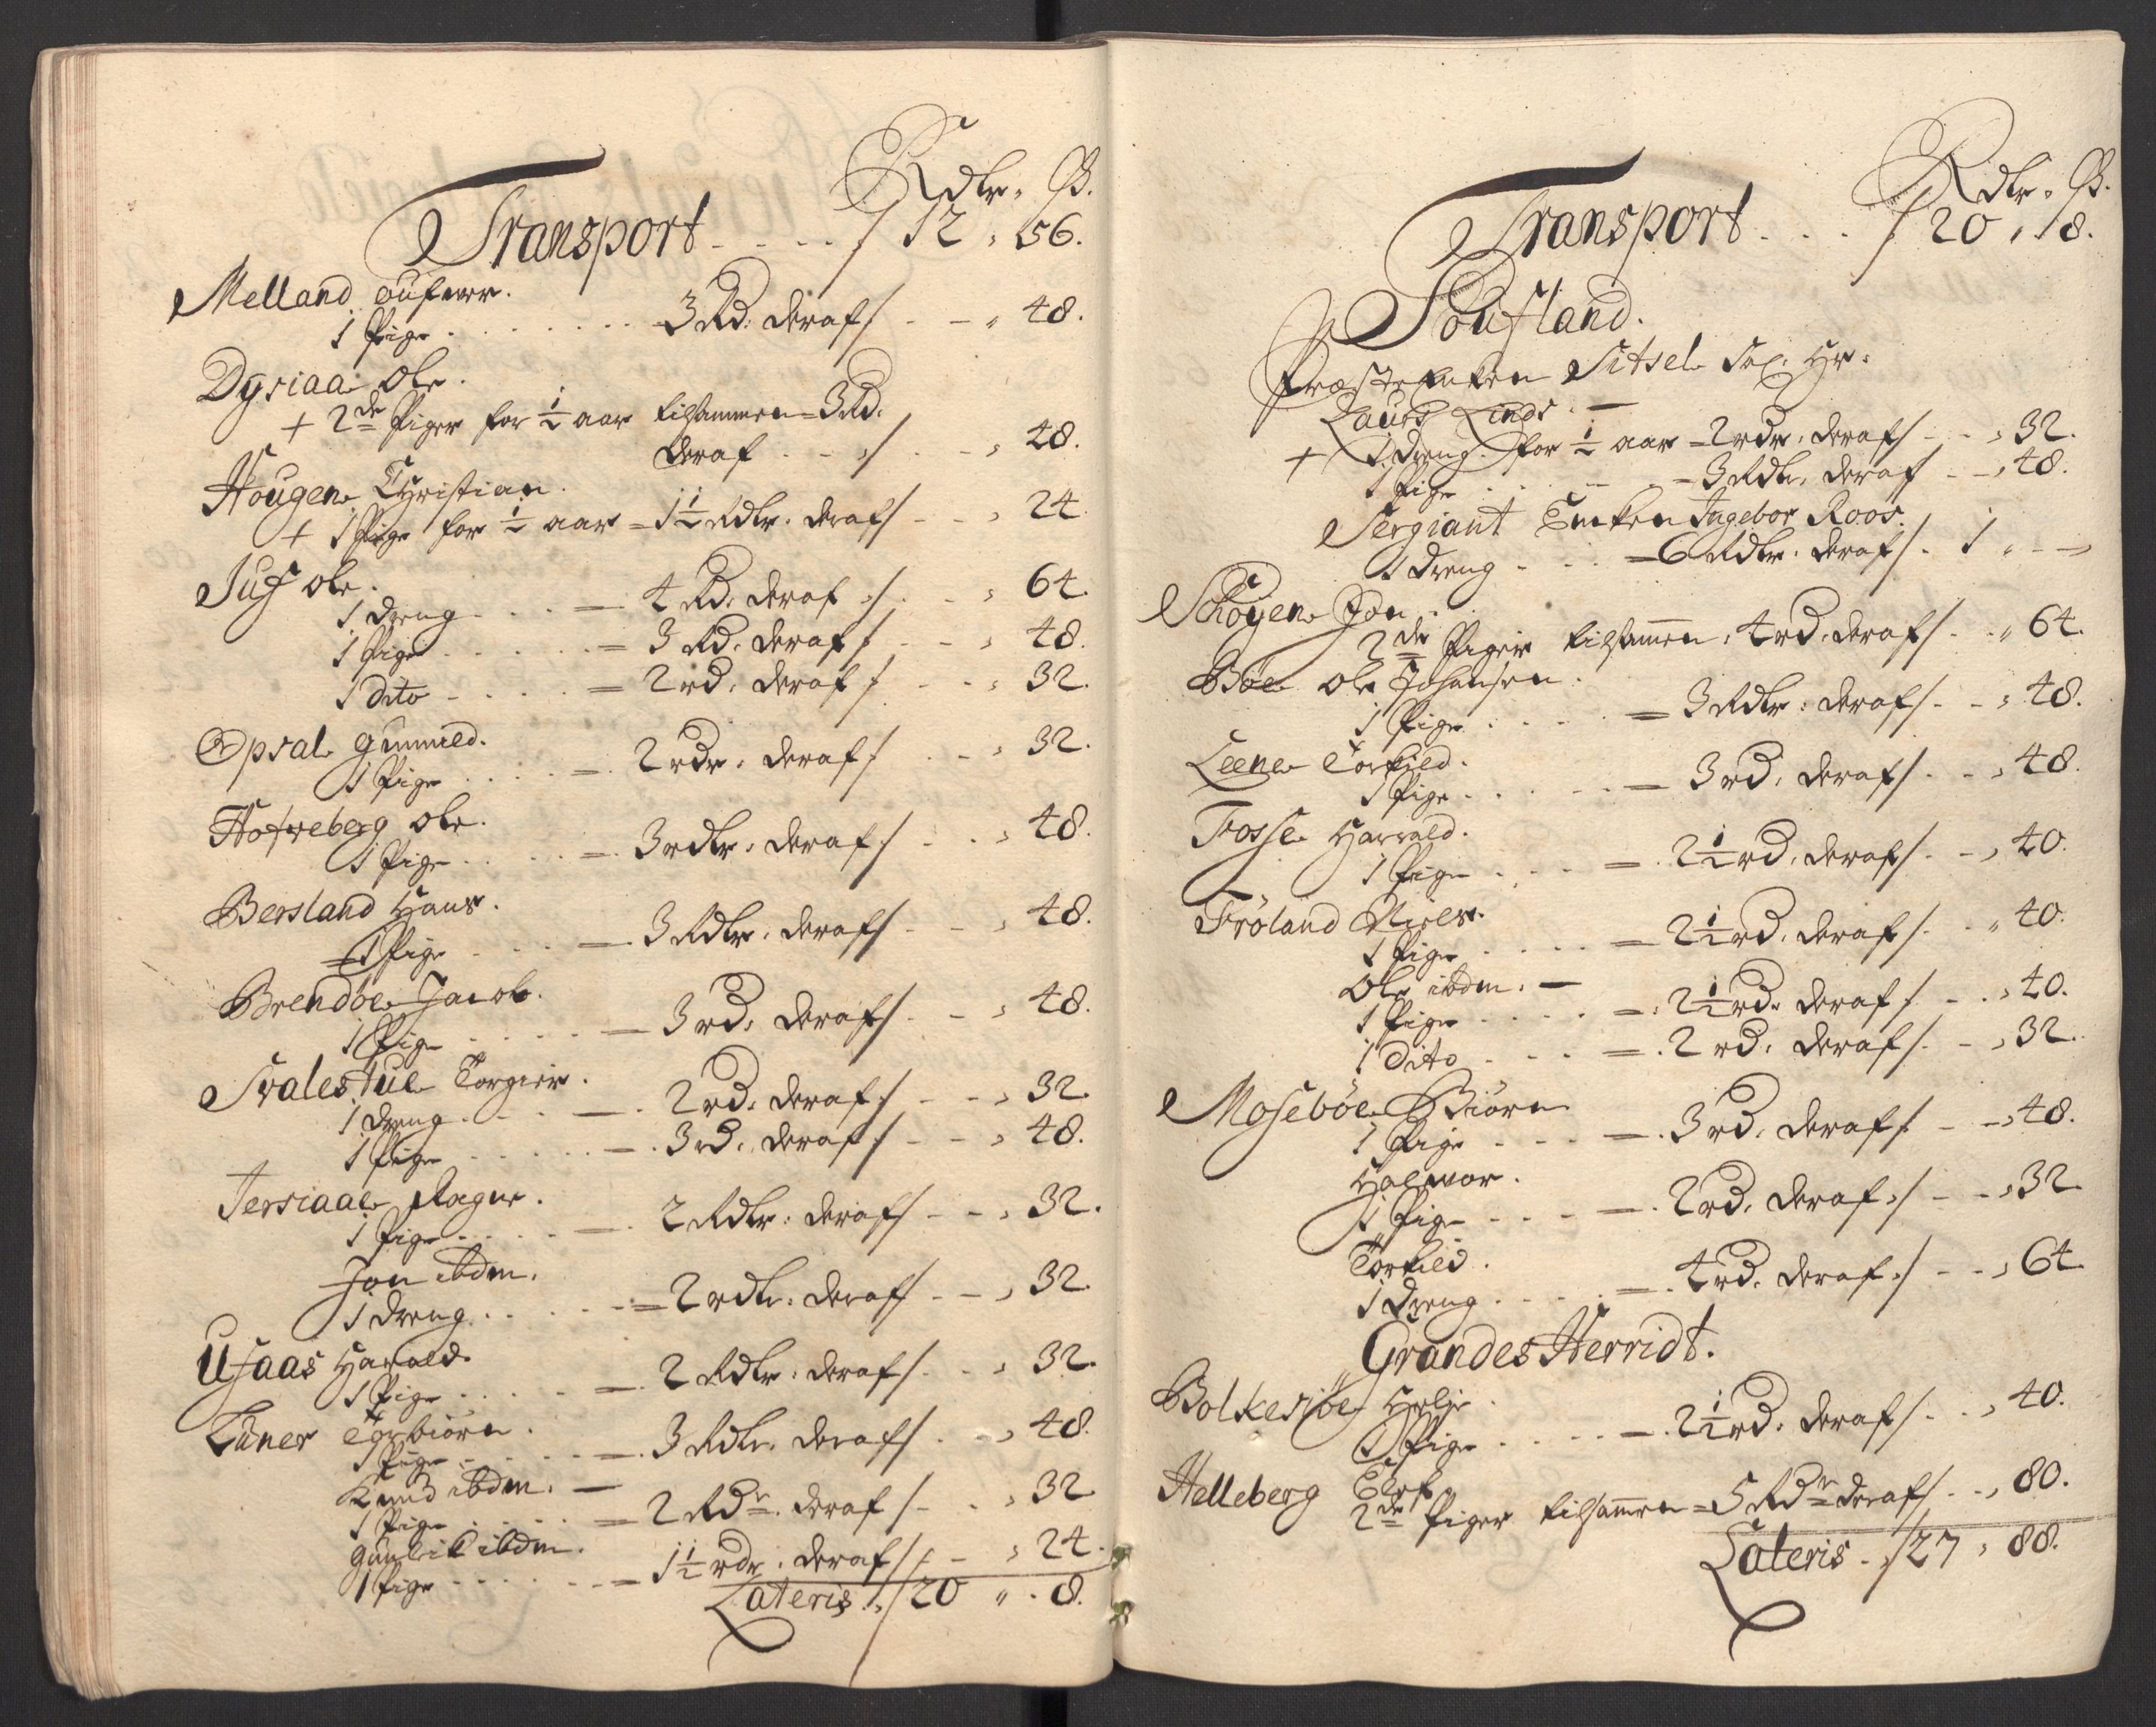 Rdlr. ß.
Transport - - - - / 12 „ 56.
Melland aufwer.
1 Pige . . . . . . . 3 Rd: deraf / - - „ 48.
Dysiaa Ole.
+ 2de Piger for ½ aar tilsammen = 3 Rd.
deraf - - / . - „ 48.
Hougen Christian.
+ 1 Pige for ½ aar = 1½ Rdlr. deraf / - - „ 24
Juf Ole.
1 dreng - . . = 4 Rd. deraf / . - „ 64.
1 Pige . . . . . = 3 Rd. deraf / - - „ 48.
1 dito - . . . = 2 rd. deraf / - - „ 32.
Opsal Gunnild.
1 Pige . . . . = 2 rdr. deraf / . - „ 32.
Hofveberg Ole.
1 Pige . . . . = 3 rdlr. deraf / . . „ 48.
Bersland Hans.
1 Pige - . . = 3 Rdlr. deraf / - - „ 48.
Brendböe Jacob.
1 Pige . . . . = 3 rd: deraf / . - „ 48.
Svalestul Torgier.
1 dreng . - - = 2 rd. deraf / - - „ 32.
1 Pige . . . . . = 3 rd. deraf / - - „ 48.
Jersiaae Aague.
1 Pige . . . . = 2 Rdlr. deraf / - - „ 32.
Jon ibdm.
1 dreng . . . . = 2 rdlr. deraf / - - „ 32.
Ufaas Harald.
1 Pige . . . . = 2 Rdlr. deraf / . . „ 32.
Luner Torbiörn.
1 Pige . . . . = 3 Rdlr. deraf / . - „ 48.
Knud ibdm. —
1 Pige . . . . = 2 Rdr. deraf / - . „ 32
Gunlik ibdm.
1 Pige . . . . . = 1½ rdr. deraf / - „ 24.
Lateris . / 20 „ . 8.
Rdlr. ß.
Transport . . . / 20 „ 8.
Soufland.
Præsteenken Sitsel Sal. Hr.
Laurs Linds. —
+ 1 dreng for ½ aar = 2 rdr. deraf / - - „ 32.
1 Pige . . . . . = 3 Rdlr. deraf - - „ 48.
Sergiant Enken Ingebor Roos.
1 dreng - . . = 6 Rdlr. deraf / . 1 „ - -
Schöyen Jon.
2de Piger tilsammen. 4 rd. deraf / . . „ 64.
Böe Ole Johansen.
1 Pige . . . . = 3 Rdlr. deraf / - - „ 48.
Leene Torkild.
1 Pige . . . . = 3 rd. deraf / . - „ 48.
Fosse Harrald.
1 Pige - . . . = 2½ rd. deraf / . - „ 40.
Fröland Niels.
1 Pige . . . . = 2½ rd. deraf / . . „ 40.
Ole ibdm. —
1 Pige . . . . = 2½ rd. deraf / . - „ 40.
1 dito - . . = 2 rd. deraf / . - „ 32.
Moseböe Biörn
1 Pige . - - - = 3 rd. deraf / - - „ 48.
Halvor.
1 Pige - - - = 2 rd. deraf / - - „ 32
Torkild.
1 dreng . . . . = 4 rd. deraf / - - „ 64
Grandes Herridt.
Bolkesiöe Helje.
1 Pige . . . . = 2½ rd. deraf / . . „ 40.
Helleberg Elef
2de Piger tilsammen = 5 Rdr deraf / . . „ 80.
Lateris . / 27 „ 88.